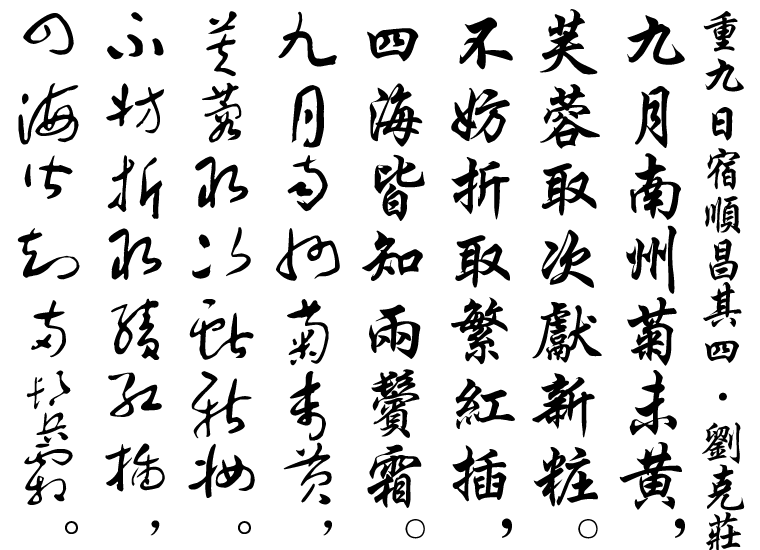 重九日宿順昌其四・劉克莊
九月南州菊未黃，
芙蓉取次獻新粧。
不妨折取繁紅插，
四海皆知兩鬢霜。
九月南州菊未黃，
芙蓉取次獻新粧。
不妨折取繁紅插，
四海皆知兩鬢霜。